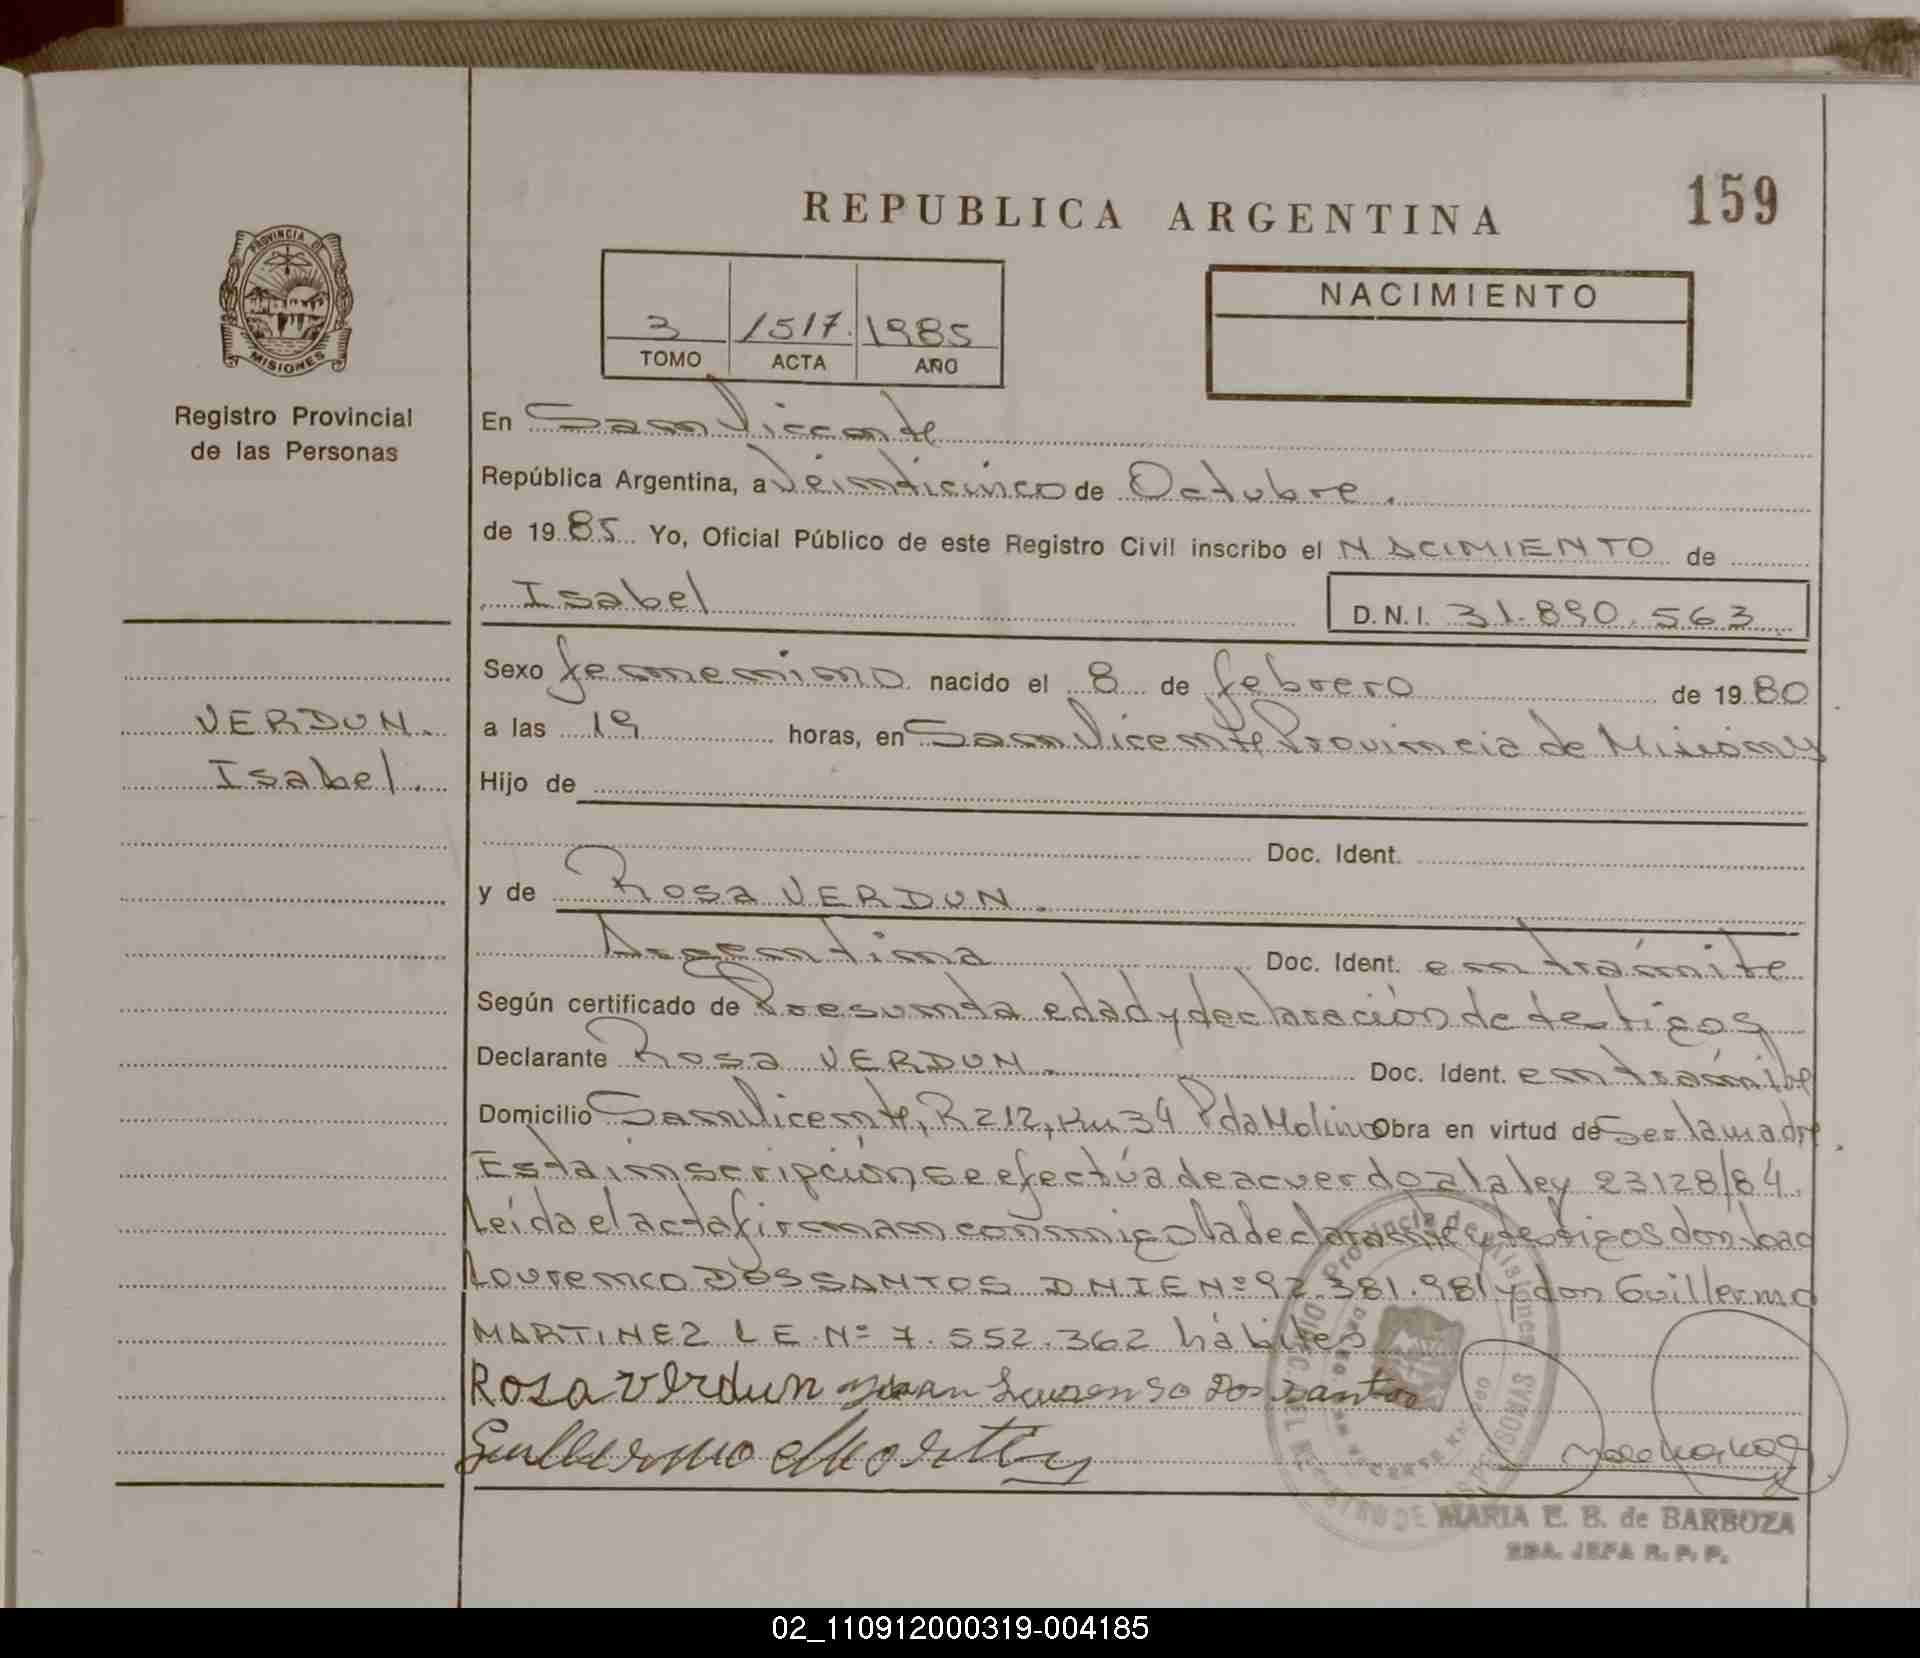 REPUBLICA ARGENTINA
159
PROVINCIA DE
MISIONES
Registro Provincial
de las Personas
3 1517. 1985
TOMO ACTA AÑO
NACIMIENTO
En San Vicente
República Argentina, a Veinticinco de Octubre.
de 1985 Yo, Oficial Público de este Registro Civil inscribo el NACIMIENTO de
Isabel D.N.I. 31.890.563
Sexo femenino nacido el 8 de febrero de 1980
VERDUN.
Isabel.
a las 19 horas, en San Vicente Provincia de Misiones
Hijo de
Doc. Ident.
y de Rosa VERDUN.
Argentina Doc. Ident. en trámite
Según certificado de Presunta edad y declaración de testigos
Declarante Rosa VERDUN. Doc. Ident. en trámite
Domicilio San Vicente, R 212, Km 34 Pda Molino Obra en virtud de Ser la madre.
Esta inscripción se efectúa de acuerdo a la ley 23128/84.
Leída el acta firman conmigo la declarante y testigos don Joao
Lourenco DOS SANTOS DNIE Nº 92.381.981 y don Guillermo
MARTINEZ LE Nº 7.552.362 hábiles
Rosa Verdun Juan Laurenso Dos Santos
Guillermo Martinez
MARIA E. B. de BARBOZA
SDA. JEFA R. P. P.
02_110912000319-004185